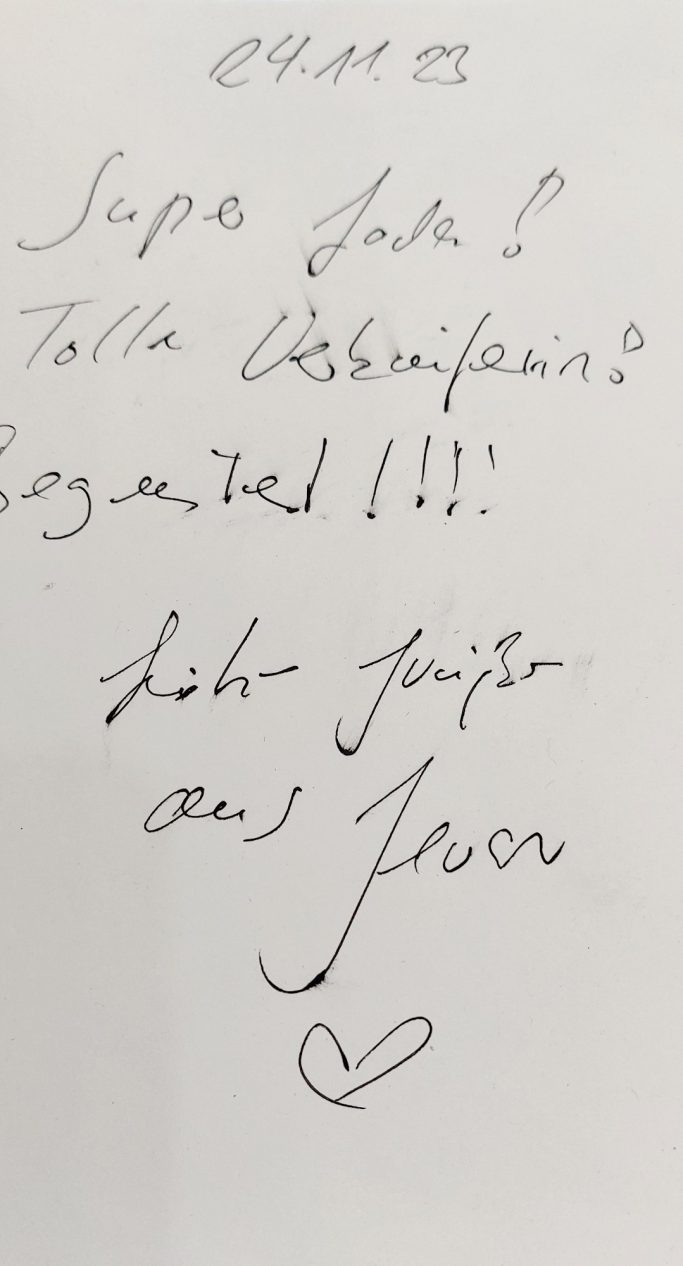 24.11.23
Super Laden!
Tolle Verkäuferin!
Begeistert!!!!
Liebe Grüße
aus